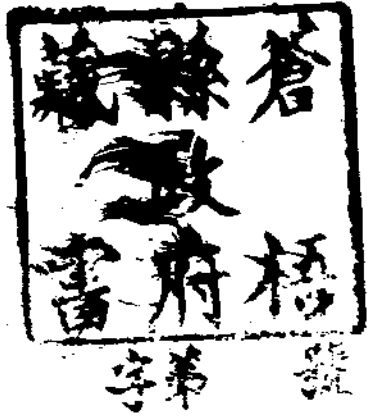 蒼梧
縣政府
藏書
字第 號